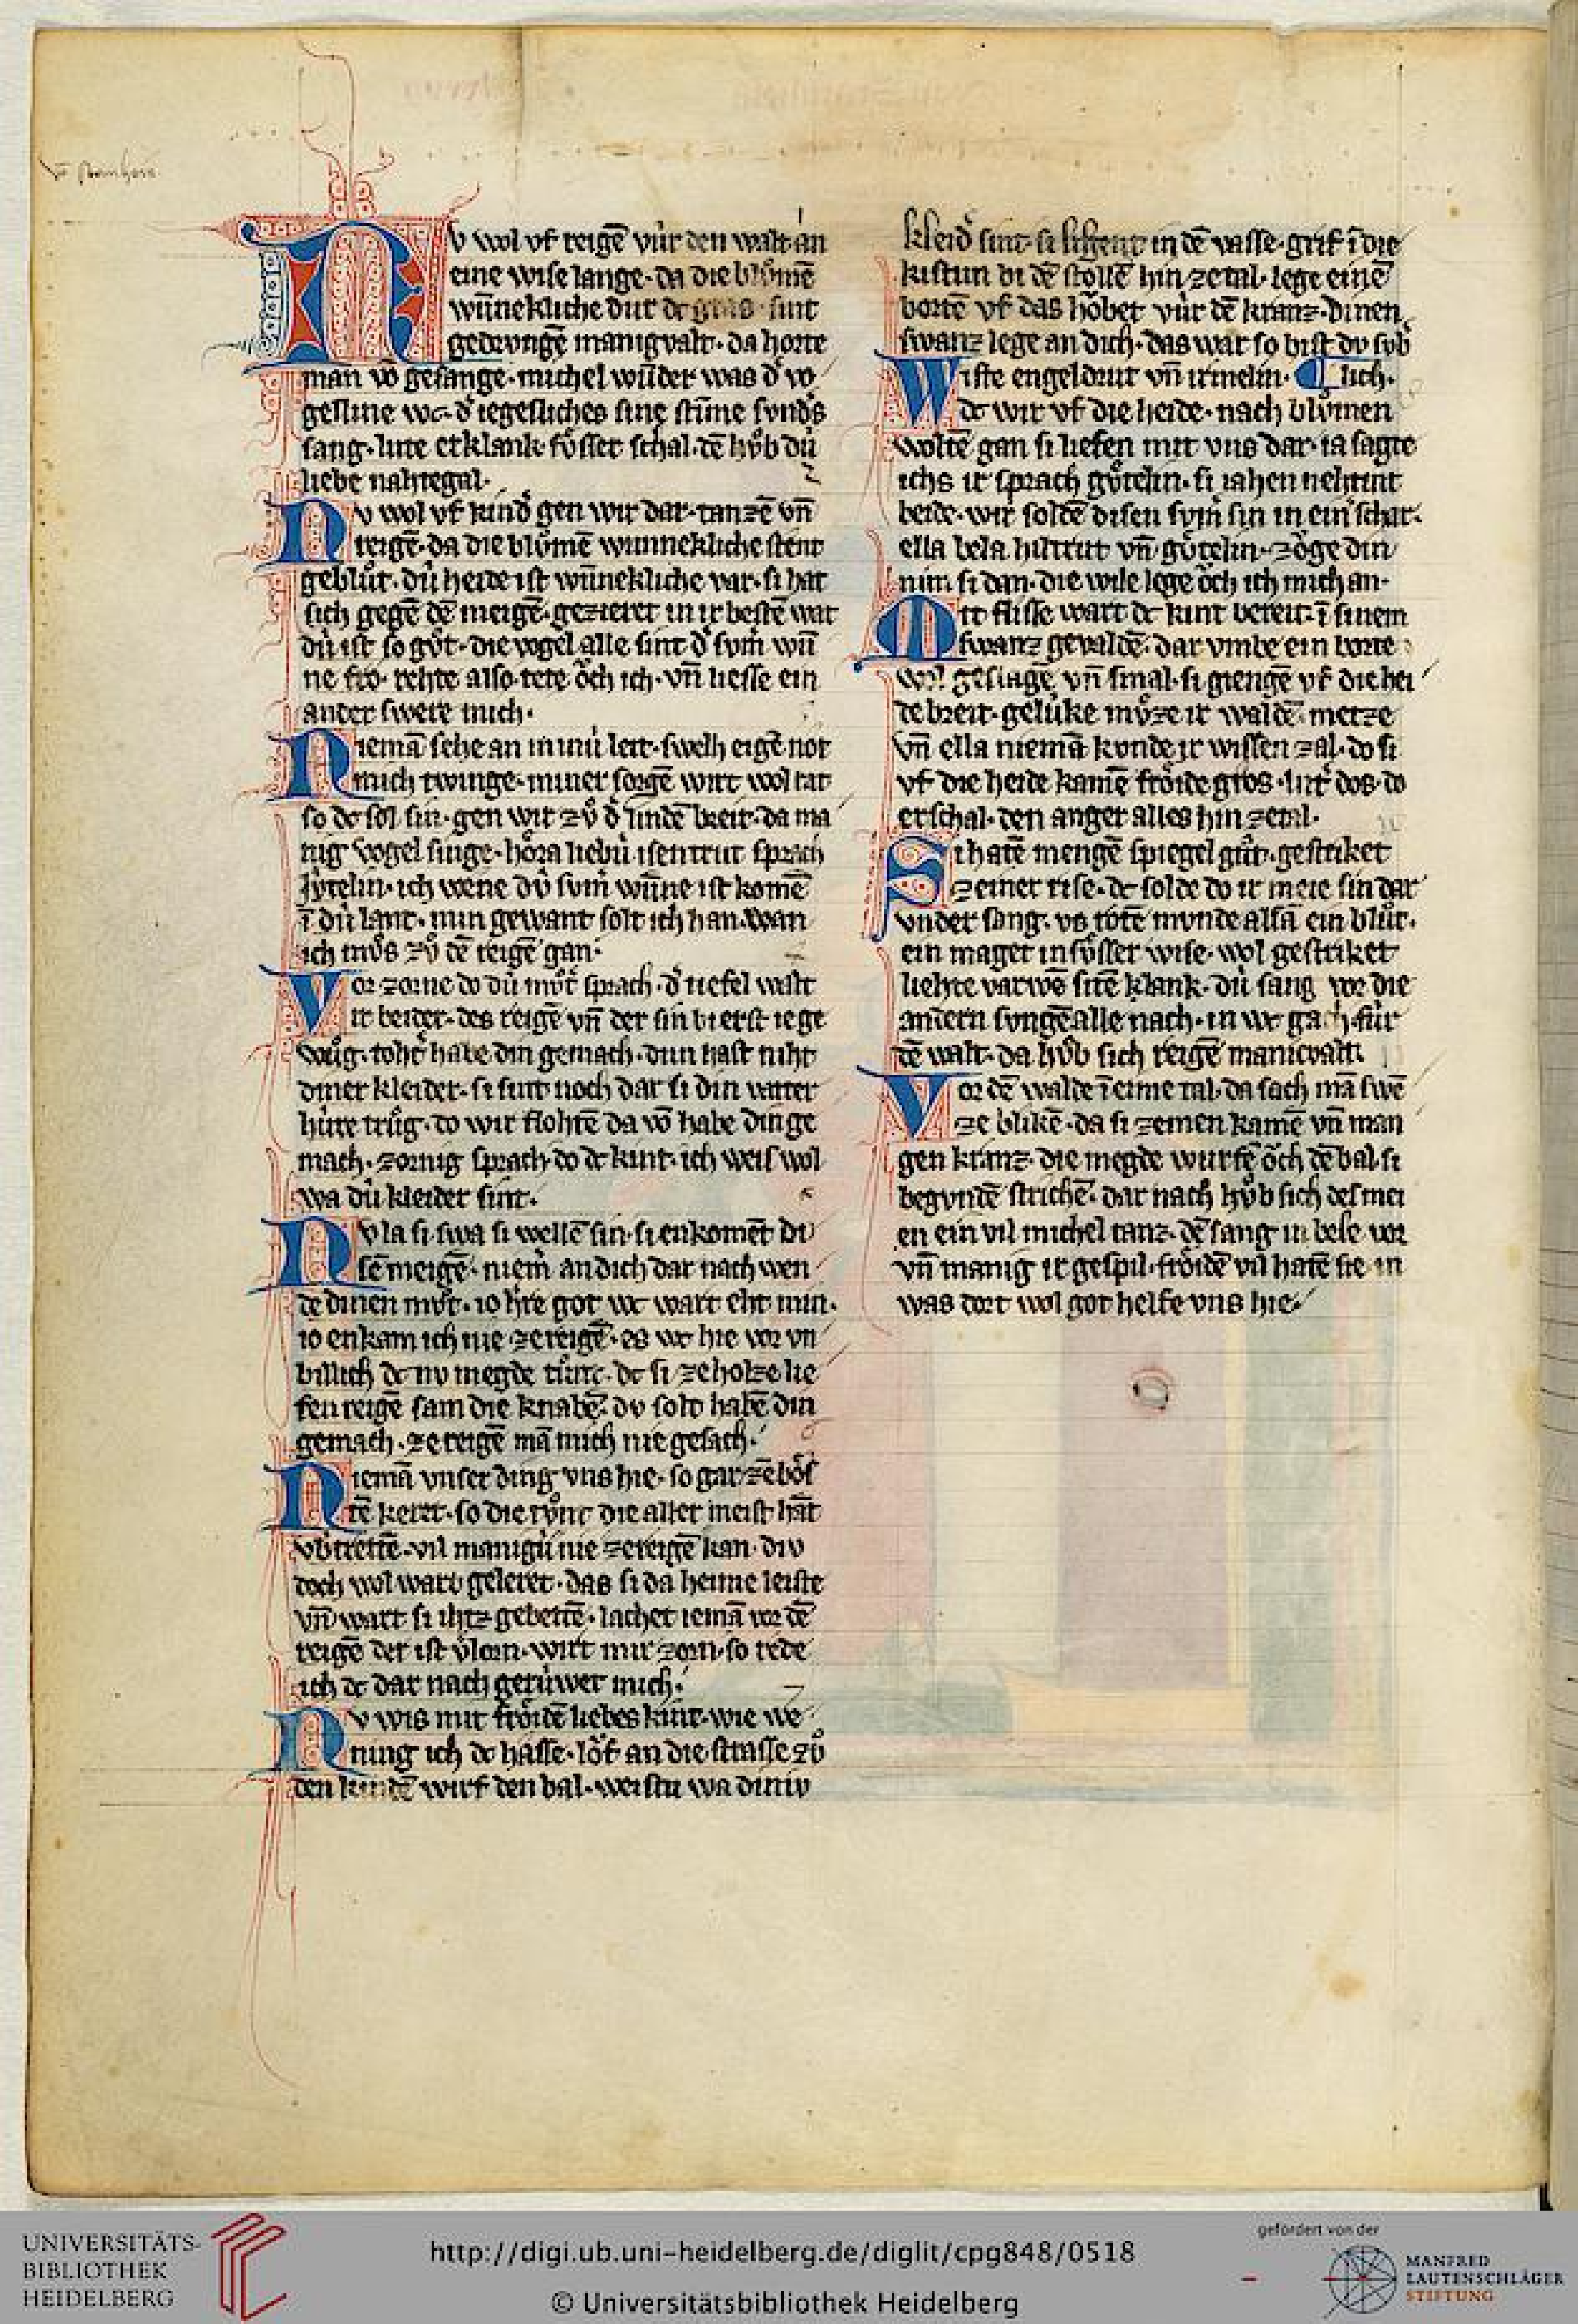 Nv wol vf reigē vúr den walt an
eine wise lange· da die blůmē
wūnekliche dur dc gras· sint
gedrvngē manigvalt· da horte
man vō gesange· michel wūder was d̓ vo
gelline wc· d̓ iegesliches sine stīme svnd̓s
sang· lute erklank sůsser schal· dē hůb dú
liebe nahtegal·
Nv wol vf kind̓ gen wir dar· tanzē vn̄
reigē· da die blůmē wunnekliche stent
geblůt· dú heide ist wūnekliche var· si hat
sich gegē dē meigē· gezieret in ir bestē wat
dú ist so gůt· die vogel alle sint d̓ svm̄ wn̄
ne fro· rehte also tete ǒch ich· vn̄ liesse ein
ander swere mich·
Niemā sehe an minú leit· swelh eigē not
mich twinge· miner sorgē wirt wol rat
so dc sol sin· gen wir zů d̓ lindē breit· da ma
nig vogel singe· hôra liebú isentrut sprach
Jútelin· ich wene dú svm̄ wūne ist komē
ī dú lant· min gewant solt ich han· wan
ich můs zů dē reigē gan·
Vor zorne do dú můt̓ sprach· d̓ tiefel walt
ir beider· des reigē vn̄ der sin bi erst iege
wůg· toht̓ habe din gemach· dun hast niht
diner kleider· si sint noch dar si din vatter
húre trůg· do wir flohtē da vō habe din ge
mach· zornig sprach do dc kint· ich weis wol
wa dú kleider sint·
Nv la si swa si wellē sin· si enkomēt di
sē meigē· niem̄ an dich dar nach wen
de dinen můt· io h̓re got wc wart eht min·
io enkam ich nie ze reigē· es wc hie vor vn
billich dc nv megde tůnt· dc si ze holze lie
fen reigē sam die knabē· dv solt habē din
gemach· ze reigē mā mich nie gesach·
Niemā vnser ding vns hie· so gar zē bôs
tē keret· so die tůnt die aller meist hāt
vb̓ trettē· vil manigú nie ze reigē kan· div
doch wol wart geleret· das si da heime leiste
vn̄ wart si ihtz gebettē· lachet iemā vor dē
reigē der ist v̓lorn· wirt mir zorn· so rede
ich dc dar nach gerúwet mich·
Nv wis mit frôidē liebes kint· wie we
ning ich dc hasse· lôf an die strasse zů
den kindē wirf den bal· weistu wa diniv
kleid̓ sint· si ligent in dē vasse· grif ī die
kistun bi dē stollē hin ze tal· lege einē
bortē vf das hôbet vúr dē kranz· dinen
swanz lege an dich· das war so bist dv súb̓
Wiste engeldrut vn̄ irmelin· lich·
dc wir vf die heide· nach blůmen
woltē gan si liefen mit vns dar· ia sagte
ichs ir sprach gůtelin· si iahen nehtint
beide· wir soldē disen svm̄ sin in ein̓ schar·
ella bela hiltrut vn̄ gůtelin· zôge din
nim si dan· die wile lege ôch ich mich an·
Mit flisse wart dc kint bereit· ī sinem
swanz gevaldē· dar vmbe ein borte
wol geslagē vn̄ smal· si giengē vf die hei
de breit· gelúke můze ir waldē· metze
vn̄ ella niemā konde ir wissen zal· do si
vf die heide kamē frôide gros· lut̓ dos· do
erschal· den anger alles hin ze tal·
Si hatē mengē spiegel gůt· gestriket
ze einer rise· dc solde do ir meie sin dar
vnder sang· vs rotē mvnde alsā ein blůt·
ein maget in sůsser wise· wol gestriket
liehte varwē sitē klank· dú sang vor die
andern svngē alle nach· in wc gach· fúr
dē walt· da hůb sich reigē manicvalt·
Vor dē walde ī eime tal· da sach mā swē
ze blikē· da si zemen kamē vn̄ man
gen kranz· die megde wurfē ôch dē bal· si
begvndē strichē· dar nach hůb sich des mei
en ein vil michel tanz· dē sang in bele vor
vn̄ manig ir gespil· frôidē vil hatē sie in
was dort wol got helfe vns hie·
UNIVERSITÄTS-
BIBLIOTHEK
HEIDELBERG
http://digi.ub.uni-heidelberg.de/diglit/cpg848/0518
© Universitätsbibliothek Heidelberg
gefördert von der
MANFRED
LAUTENSCHLÄGER
STIFTUNG